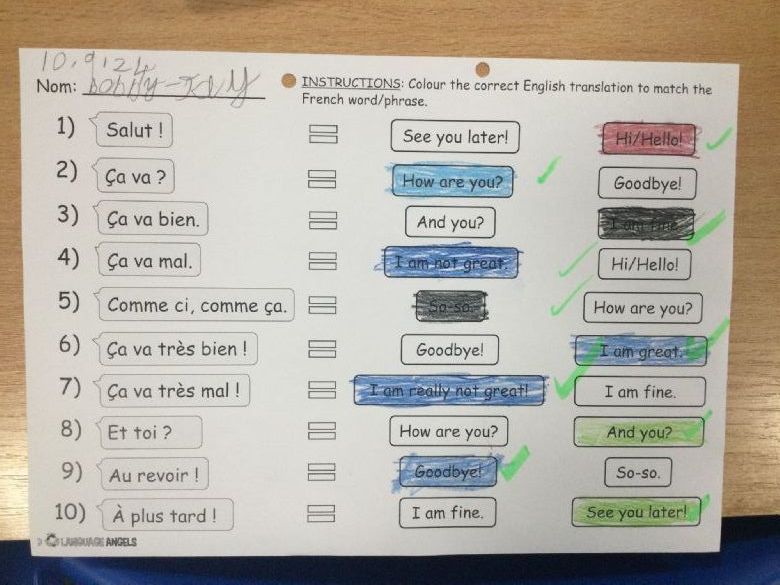 10.9.24
Nom: Bobby-
INSTRUCTIONS: Colour the correct English translation to match the
French word/phrase.
1) Salut ! = See you later! Hi/Hello!
2) Ça va ? = How are you? Goodbye!
3) Ça va bien. = And you? I am fine.
4) Ça va mal. = I am not great. Hi/Hello!
5) Comme ci, comme ça. = So-so. How are you?
6) Ça va très bien ! = Goodbye! I am great.
7) Ça va très mal ! = I am really not great! I am fine.
8) Et toi ? = How are you? And you?
9) Au revoir ! = Goodbye! So-so.
10) À plus tard ! = I am fine. See you later!
LANGUAGE ANGELS